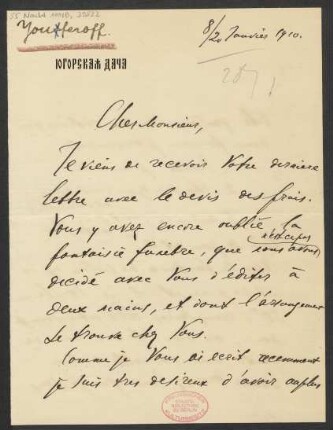 55 Nachl
Youfferoff
8/20 Janvier 1910.
ЮГОРСКАЯ ДАЧА
Cher Monsieur,
Je viens de recevoir Votre derniere
lettre avec le devis des frais.
Vous y avez encore oublié la
fantaisie funèbre, que nous avons
décidé avec Vous d'éditer à
deux mains, et dont l'arrangement
se trouve chez Vous.
Comme je Vous ai ecrit recemment
je suis tres desireux d'avoir